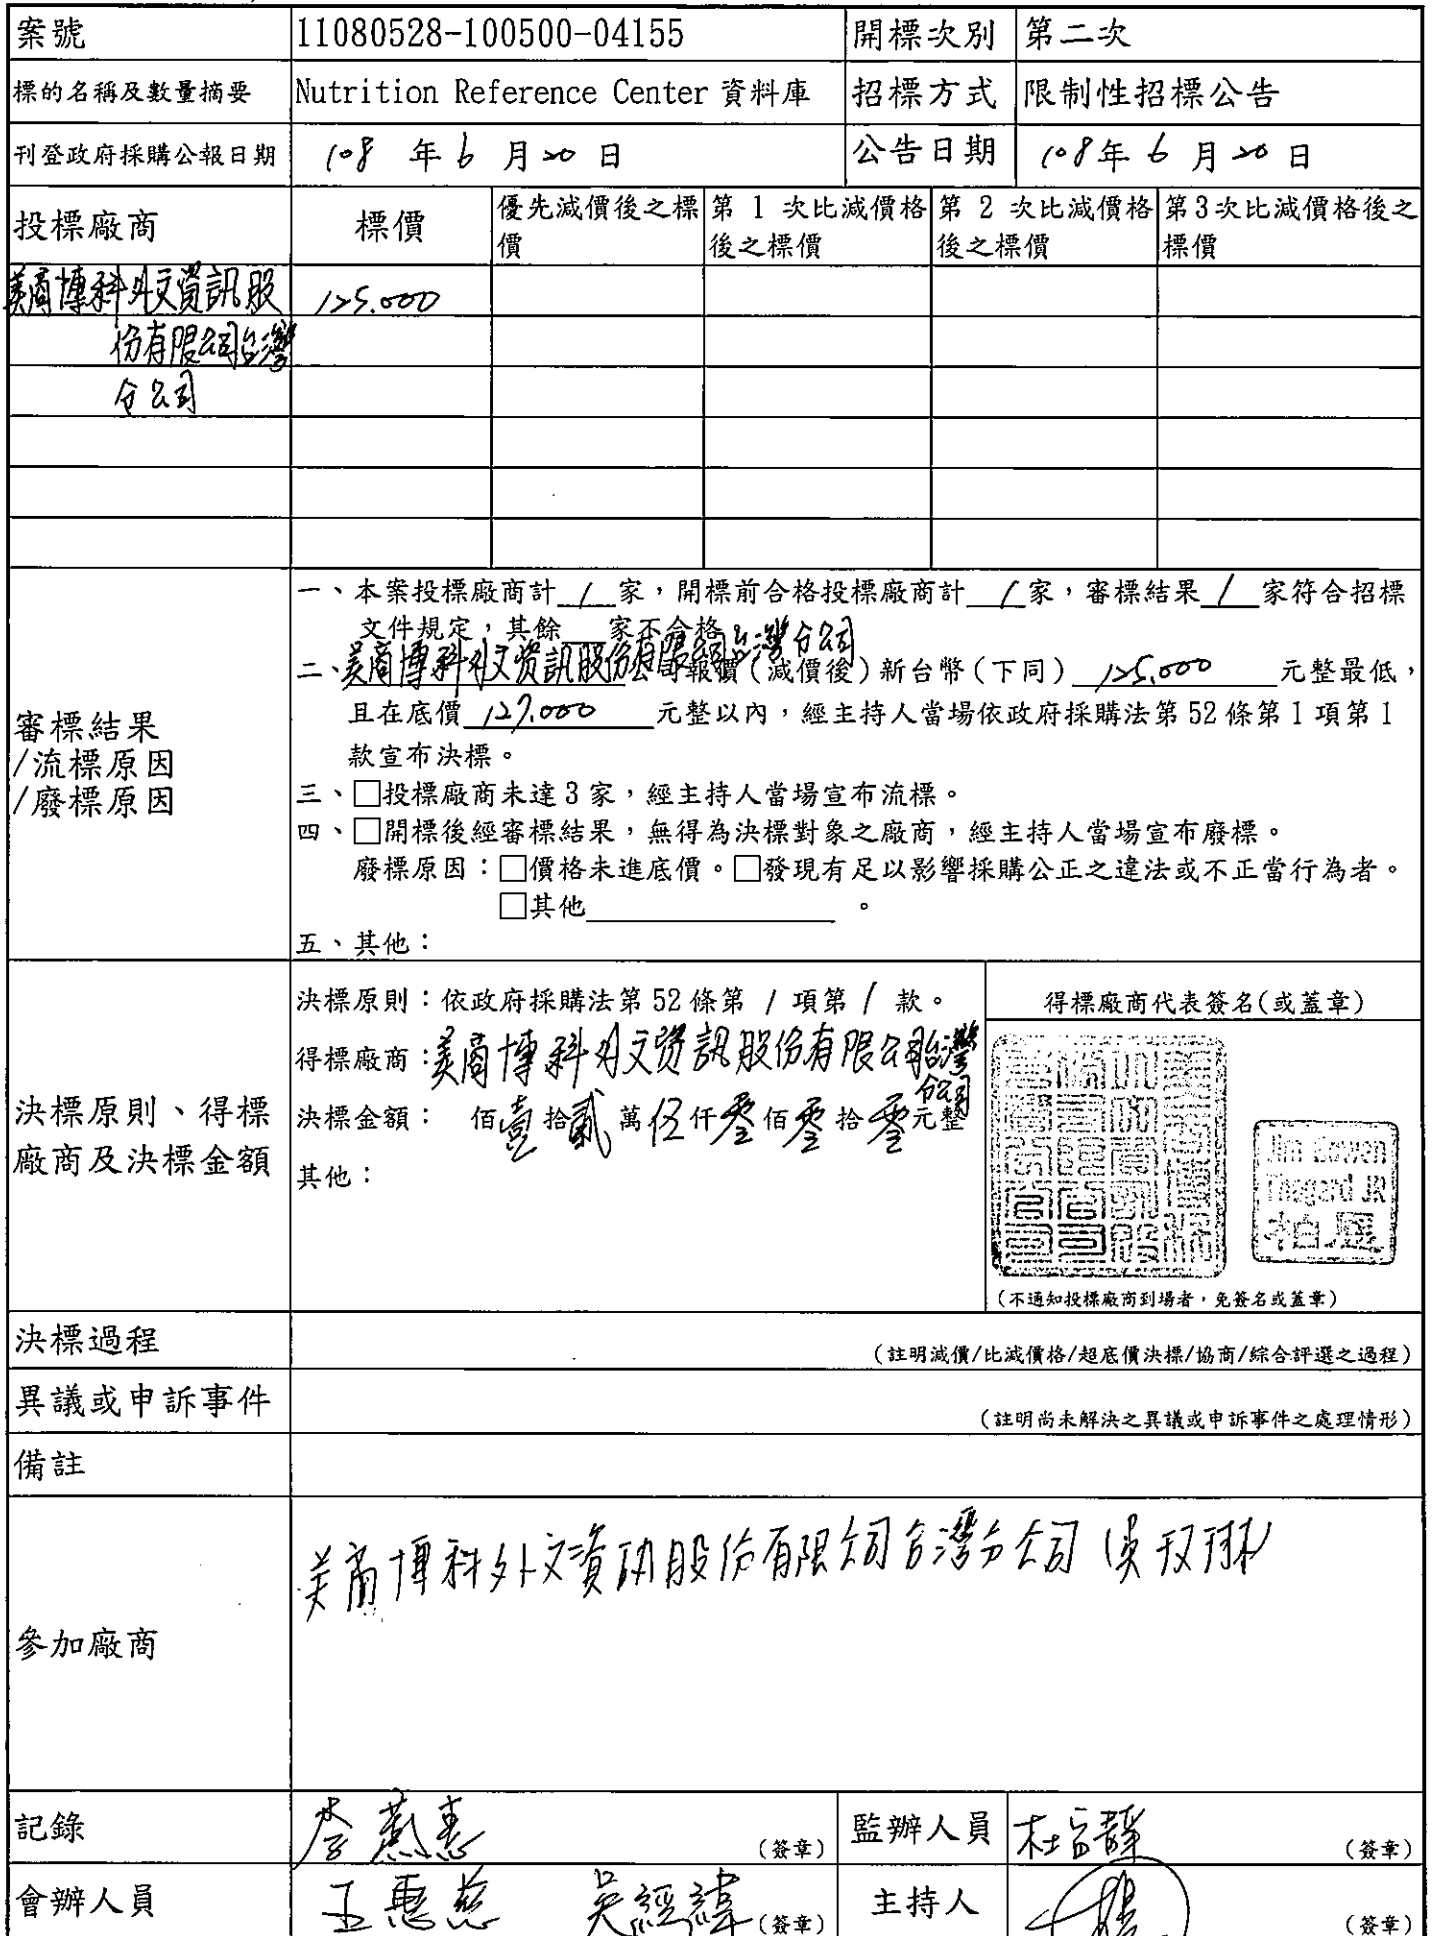 案號 11080528-100500-04155 開標次別 第二次
標的名稱及數量摘要 Nutrition Reference Center 資料庫 招標方式 限制性招標公告
刊登政府採購公報日期 108 年 6 月 20 日 公告日期 108 年 6 月 20 日
投標廠商 標價 優先減價後之標價 第 1 次比減價格後之標價 第 2 次比減價格後之標價 第3次比減價格後之標價
美商博科外文資訊股 125.000
份有限公司台灣
分公司
審標結果
/流標原因
/廢標原因
一、本案投標廠商計 1 家，開標前合格投標廠商計 1 家，審標結果 1 家符合招標
文件規定，其餘 家不合格
二、美商博科外文資訊股份有限公司台灣分公司 公司報價(減價後)新台幣(下同) 125.000 元整最低，
且在底價 127.000 元整以內，經主持人當場依政府採購法第 52 條第 1 項第 1
款宣布決標。
三、□投標廠商未達 3 家，經主持人當場宣布流標。
四、□開標後經審標結果，無得為決標對象之廠商，經主持人當場宣布廢標。
廢標原因：□價格未進底價。□發現有足以影響採購公正之違法或不正當行為者。
□其他 。
五、其他：
決標原則、得標
廠商及決標金額
決標原則：依政府採購法第 52 條第 1 項第 1 款。
得標廠商：美商博科外文資訊股份有限公司台灣
分公司
決標金額： 佰壹拾貳萬伍仟零佰零拾零元整
其他：
得標廠商代表簽名(或蓋章)
柏
(不通知投標廠商到場者，免簽名或蓋章)
決標過程 (註明減價/比減價格/超底價決標/協商/綜合評選之過程)
異議或申訴事件 (註明尚未解決之異議或申訴事件之處理情形)
備註
參加廠商 美商博科外文資訊股份有限公司台灣分公司
記錄 (簽章) 監辦人員 (簽章)
會辦人員 王惠慈 吳經緯 (簽章) 主持人 (簽章)